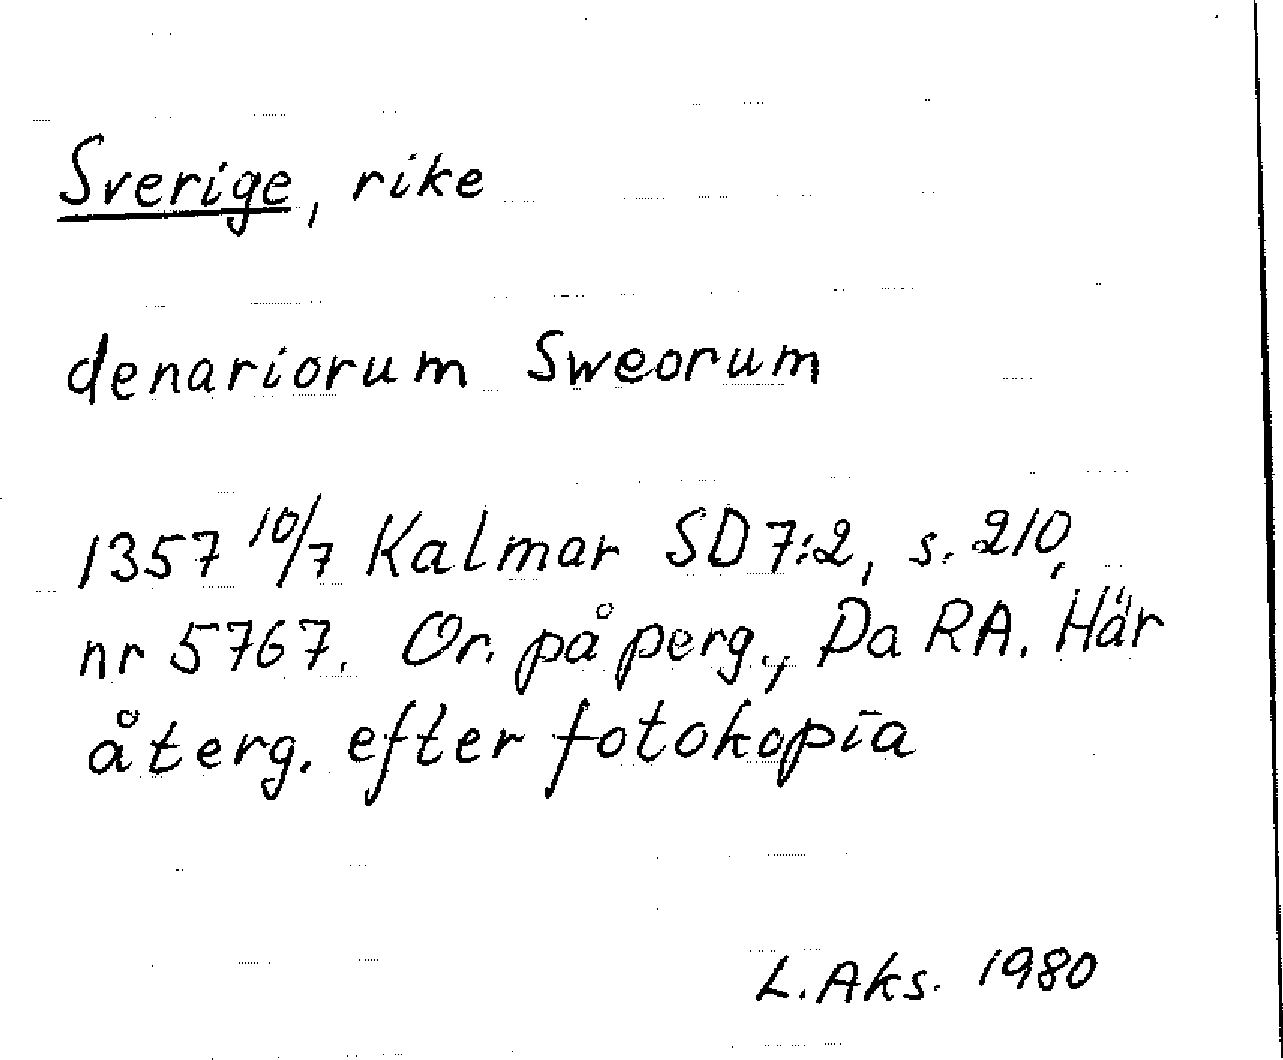 Sverige, rike
denariorum Sweorum
1357 10/7 Kalmar SD 7:2, s. 210,
nr 5767. Or. på perg., Da RA. Här
återg. efter fotokopia
L. Aks. 1980